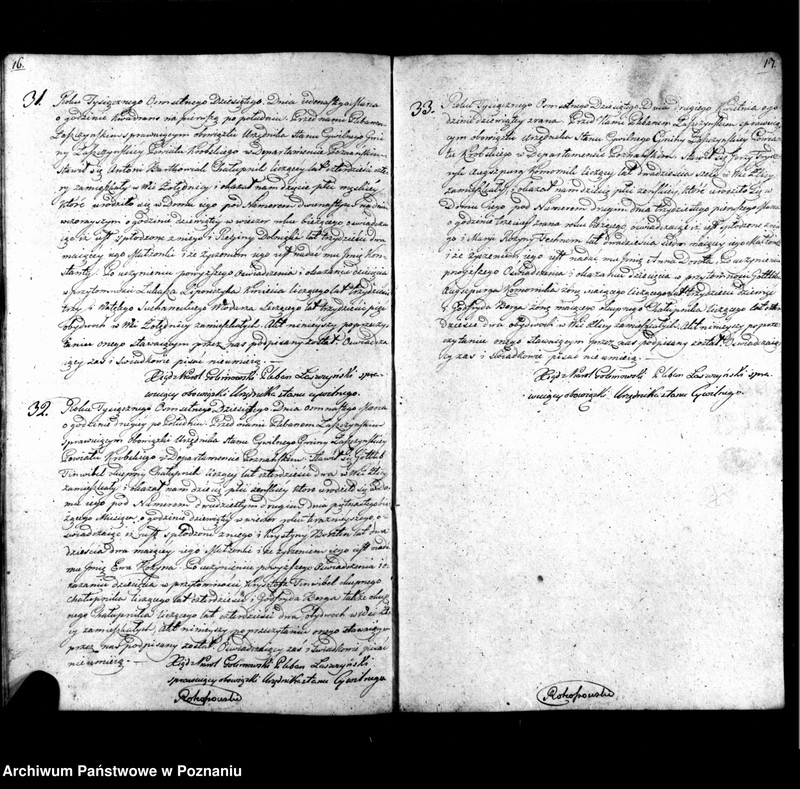 16.
31. Roku Tysiącznego Osmsetnego Dziesiątego. Dnia
o godzinie kwadrans na pierwszą po południu. Przed nami Plebanem
Łaszczyńskim sprawującym obowiązki Urzędnika Stanu Cywilnego Gmi-
ny Łaszczyńskiey Powiatu Krobskiego w Departamencie Poznańskim.
Stawił się Antoni Bartkowiak Chałupnik liczący lat czterdzieści czte-
ry zamieszkały w Wsi Żołędnicy i okazał nam dziecię płci męskiey
które urodziło się w domu iego pod Numerem dwunastym dnia
wzorayszym o godzinie dziewiąty w wieczor roku bieżącego oświadcza-
iąc iż iest spłodzone z niego i Reginy lat trzydzieści dwa
maiącey iego Małżonki i że życzeniem iego iest nadać mu Imię Kon-
stanty. Po uczynieniu powyższego oświadczenia i okazaniu dziecięcia
w przytomności Łukasza liczącego lat trzydzieści
trzy i Woyciecha Sucharskiego Włodarza liczącego lat trzydzieści pięć
obydwoch w Wsi Żołędnicy zamieszkałych. Akt ninieyszy po przeczy-
taniu onego stawaiącym przez nas podpisany został. Oświadcza-
iący zaś i świadkowie pisać nieumieią. —
Xiądz Karol Golimowski Pleban Łaszczyński spra-
wuiący obowiązki Urzędnika stanu cywilnego.
32. Roku Tysiącznego Osmsetnego Dziesiątego Dnia osmnastego Marca
o godzinie drugiey po Południu. Przed nami Plebanem Łaszczyńskim
Sprawuiącym obowiązki Urzędnika Stanu Cywilnego Gminy Łaszczyńskiey
Powiatu Krobskiego w Departamencie Poznańskim. Stawił się Gottlib
Chałupnik liczący lat czterdzieści dwa w Wsi
zamieszkały i okazał nam dziecię płci żeńskiey które urodziło się w Do-
mu iego pod Numerem dwudziestym drugim dnia
żącego Miesiąca o godzinie dziewiąty w wieczor roku teraznieyszego o-
świadczaiąc iż iest spłodzone z niego i Krystyny lat dwa-
dzieścia dwa maiącey iego Małżonki i że życzeniem iego iest nadać
mu Imię Ewa Rozyna. Po uczynieniu powyższego oświadczenia i o-
kazaniu dziecięcia w przytomności Krysztofa
chałupnika liczącego lat czterdzieści i Godfryda Berga także
Chałupnika liczącego lat czterdzieści dwa obydwoch w Wsi
zamieszkałych. Akt ninieyszy po przeczytaniu onego stawaiącym
przez nas podpisany został Oświadczaiący zaś i świadkowie pisać
nieumieią. —
Xiądz Karol Golimowski Pleban Łaszczyński
sprawuiący obowiązki Urzędnika stanu Cywilnego
Rokossowski
17.
33. Roku Tysiącznego Osmsetnego Dziesiątego. Dnia drugiego Kwietnia o go-
dzinie dziewiąty zrana. Przed Nami Plebanem Łaszczyńskim sprawuią-
cym obowiązki Urzędnika Stanu Cywilnego Gminy Łaszczyńskiey Powia-
tu Krobskiego w Departamencie Poznańskim. Stawił się
komornik liczący lat w Wsi
zamieszkały i okazał nam dziecię płci żeńskiey, które urodziło się w
Domu iego pod Numerem drugim dnia trzydziestego pierwszego Marca
o godzinie trzeciey zrana roku bieżącego oświadczaiąc iż iest spłodzone z nie-
go i Maryi Rozyny lat dwadzieścia siedm maiącey iego Małżonki
i że życzeniem iego iest nadać mu Imię Anna Dorota. Po uczynieniu
powyższego oświadczenia i okazaniu dziecięcia w przytomności Gottlib
Komornika liczącego lat trzydzieści dziewięć
i Godfryda Berga Chałupnika liczącego lat czter-
dzieści dwa obydwoch w Wsi zamieszkałych. Akt ninieyszy po prze-
czytaniu onego stawaiącym przez nas podpisany został. Oświadczaią-
cy zaś i świadkowie pisać nieumieią. —
Xiądz Karol Golimowski Pleban Łaszczyński spra-
wuiący obowiązki Urzędnika stanu Cywilnego.
Rokossowski
Archiwum Państwowe w Poznaniu